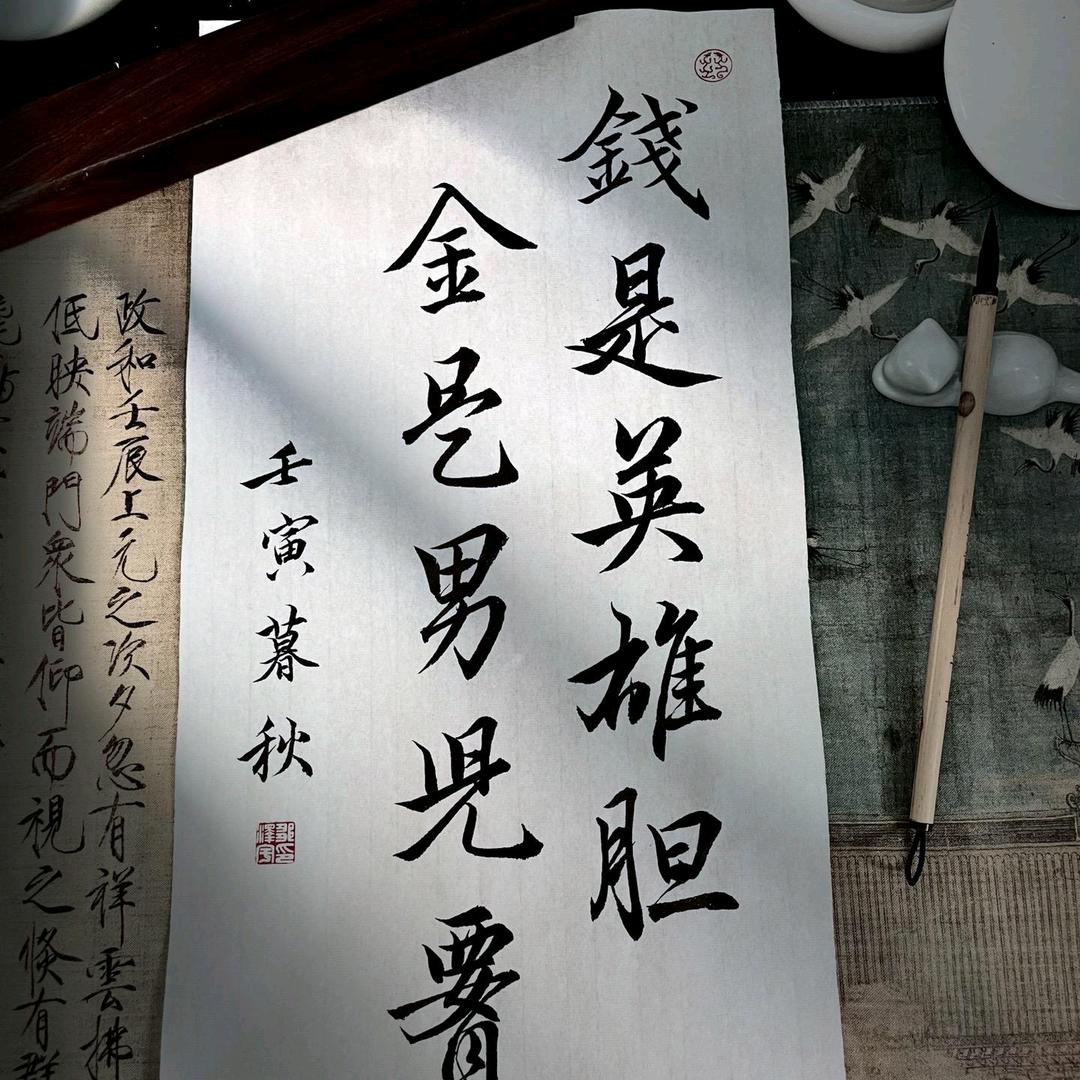 錢是英雄胆
金是男児腰
壬寅暮秋
政和壬辰上元之次夕忽有祥雲拂
低映端門衆皆仰而視之倏有群